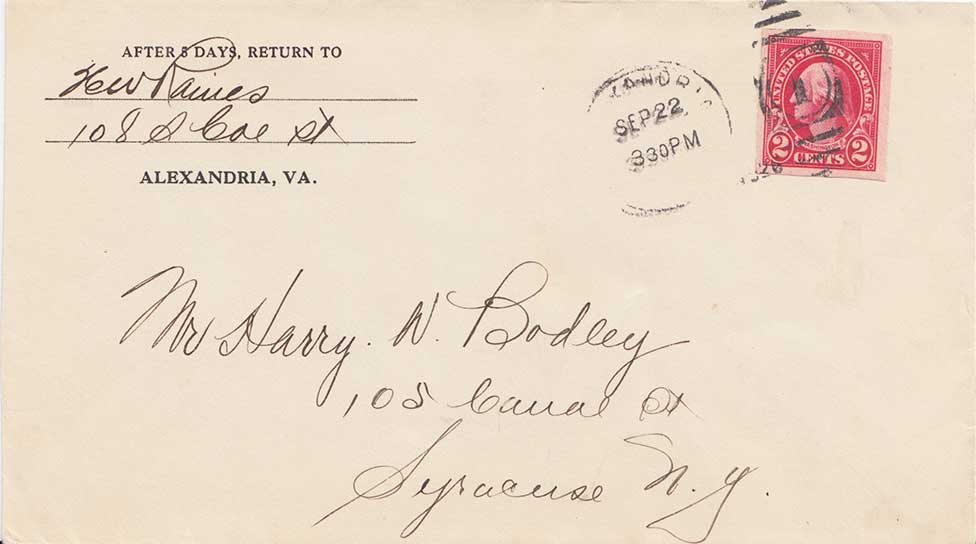 AFTER 5 DAYS, RETURN TO
HW Raines
108 S Coe St
ALEXANDRIA, VA.
SEP 22
330 PM
UNITED STATES POSTAGE
2 CENTS 2
Mr Harry. N. Bodley
105 Canal St
Syracuse N.Y.